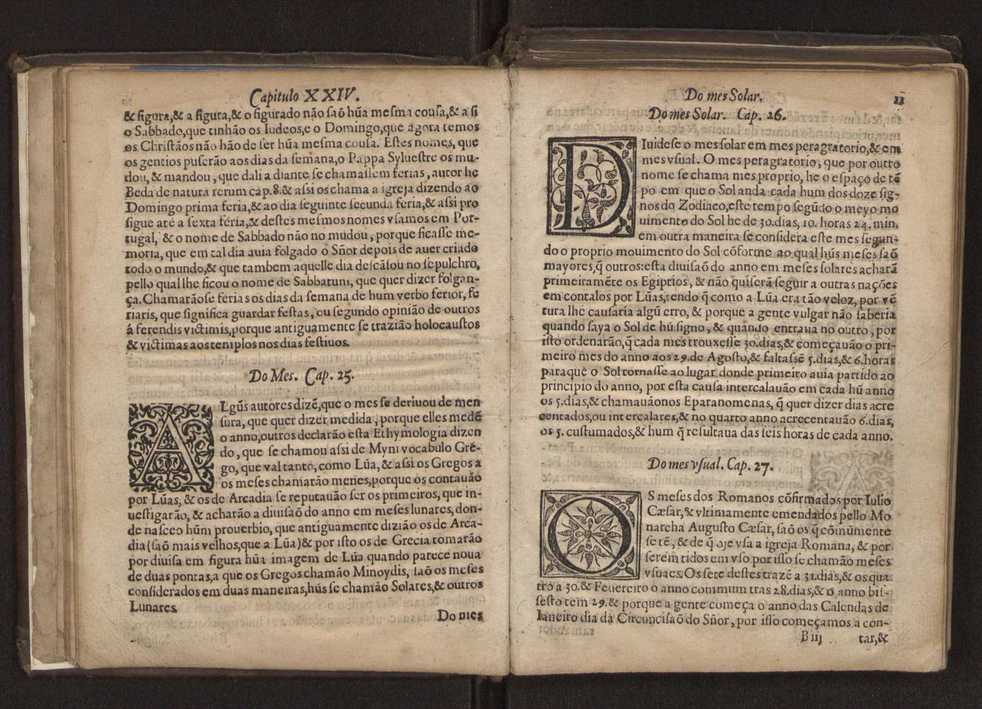 Capitulo XXIV.
& figura, & a figura, & o figurado não saõ hũa mesma cousa, & a si
o Sabbado, que tinhão os Iudeos, e o Domingo, que agora temos
os Christãos não hão de ser hũa mesma cousa. Estes nomes, que
os gentios puserão aos dias da semana, o Pappa Syluestre os mu-
dou, & mandou, que dali a diante se chamassem ferias, autor he
Beda de natura rerum cap. 8. & assi os chama a igreja dizendo ao
Domingo prima feria, & ao dia seguinte secunda feria, & assi pro
sigue até a sexta feria, & destes mesmos nomes vsamos em Por-
tugal, & o nome de Sabbado não no mudou, porque ficasse me-
moria, que em tal dia auia folgado o Sñor depois de auer criado
todo o mundo, & que tambem aquelle dia descãsou no sepulchro,
pello qual lhe ficou o nome de Sabbatum, que quer dizer folgan-
ça. Chamarãose ferias os dias da semana de hum verbo ferior, fe
riaris, que significa guardar festas, ou segundo opinião de outros
á ferendis victimis, porque antiguamente se trazião holocaustos
& victimas aos templos nos dias festiuos.
Do Mes. Cap. 25.
ALgũs autores dizẽ, que o mes se deriuou de men
sura, que quer dizer medida, porque elles medẽ
o anno, outros declarão esta Ethymologia dizen
do, que se chamou assi de Myni vocabulo Gre-
go, que val tanto, como Lũa, & assi os Gregos a
os meses chamarão menes, porque os contauão
por Lũas, & os de Arcadia se reputauão ser os primeiros, que in-
uestigarão, & acharão a diuisaõ do anno em meses lunares, don-
de nasceo hũm prouerbio, que antiguamente dizião os de Arca-
dia (saõ mais velhos, que a Lũa) & por isto os de Grecia tomarão
por diuisa em figura hũa imagem de Lũa quando parece noua
de duas pontas, a que os Gregos chamão Minoydis, saõ os meses
considerados em duas maneiras, hũs se chamão Solares, & outros
Lunares.
Do mes
Do mes Solar. 11
Do mes Solar. Cap. 26.
DIuidese o mes solar em mes peragratorio, & em
mes vsual. O mes peragratorio, que por outro
nome se chama mes proprio, he o espaço de tẽ
po em que o Sol anda cada hum dos doze sig-
nos do Zodiaco, este tempo segũdo o meyo mo
uimento do Sol he de 30. dias, 10. horas 24. min.
em outra maneira se considera este mes segun-
do o proprio mouimento do Sol cõforme ao qual hũs meses saõ
mayores, q̃ outros: esta diuisaõ do anno em meses solares acharã
primeiramẽte os Egiptios, & não quiserã seguir a outras nações
em contalos por Lũas, tendo q̃ como a Lũa era tão veloz, por vẽ
tura lhe causaria algũ erro, & porque a gente vulgar não saberia
quando saya o Sol de hũ signo, & quãndo entraua no outro, por
isto ordenarão, q̃ cada mes trouxesse 30. dias, & começauão o pri-
meiro mes do anno aos 29. de Agosto, & faltassẽ 5. dias, & 6. horas
para que o Sol tornasse ao lugar donde primeiro auia partido ao
principio do anno, por esta causa intercalauão em cada hũ anno
os 5. dias, & chamauãonos Eparanomenas, q̃ quer dizer dias acre
centados, ou intercalares, & no quarto anno acrecentauão 6. dias,
os 5. custumados, & hum q̃ resultaua das seis horas de cada anno.
Do mes vsual. Cap. 27.
OS meses dos Romanos cõfirmados por Iulio
Cæsar, & vltimamente emendados pello Mo
narcha Augusto Cæsar, saõ os q̃ cõmũmente
se tẽ, & de q̃ oje vsa a igreja Romana, & por
serem tidos em vso por isso se chamão meses
vsuaes. Os sete destes trazẽ a 31. dias, & os qua
tro a 30. & Feuereiro o anno commum tras 28. dias, & o anno bis-
sesto tem 29. & porque a gente começa o anno das Calendas de
Ianeiro dia da Circuncisaõ do Sñor, por isso começamos a con-
B iij tar, &